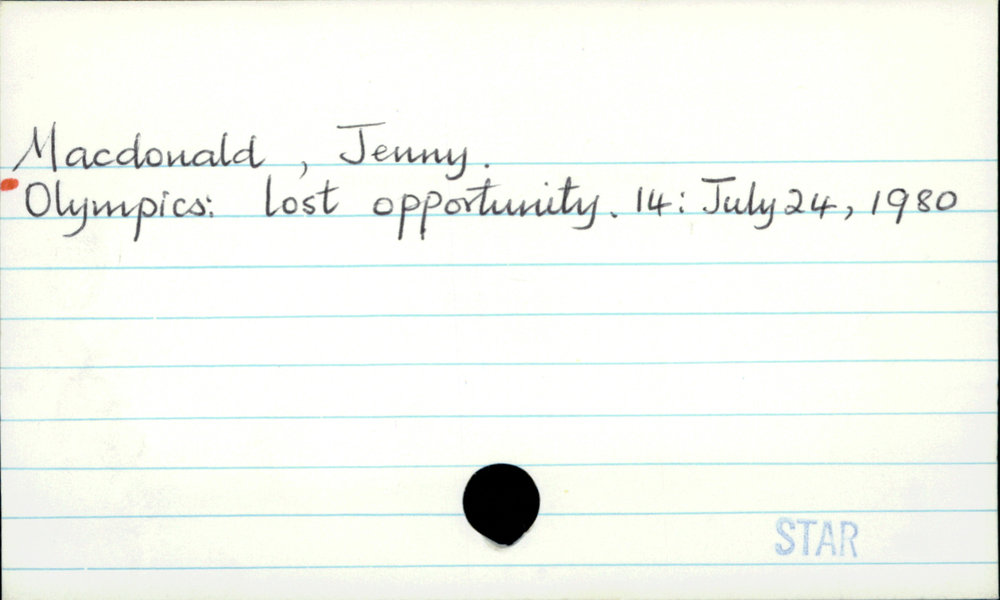 Macdonald, Jenny.
Olympics: lost opportunity. 14: July 24, 1980
STAR